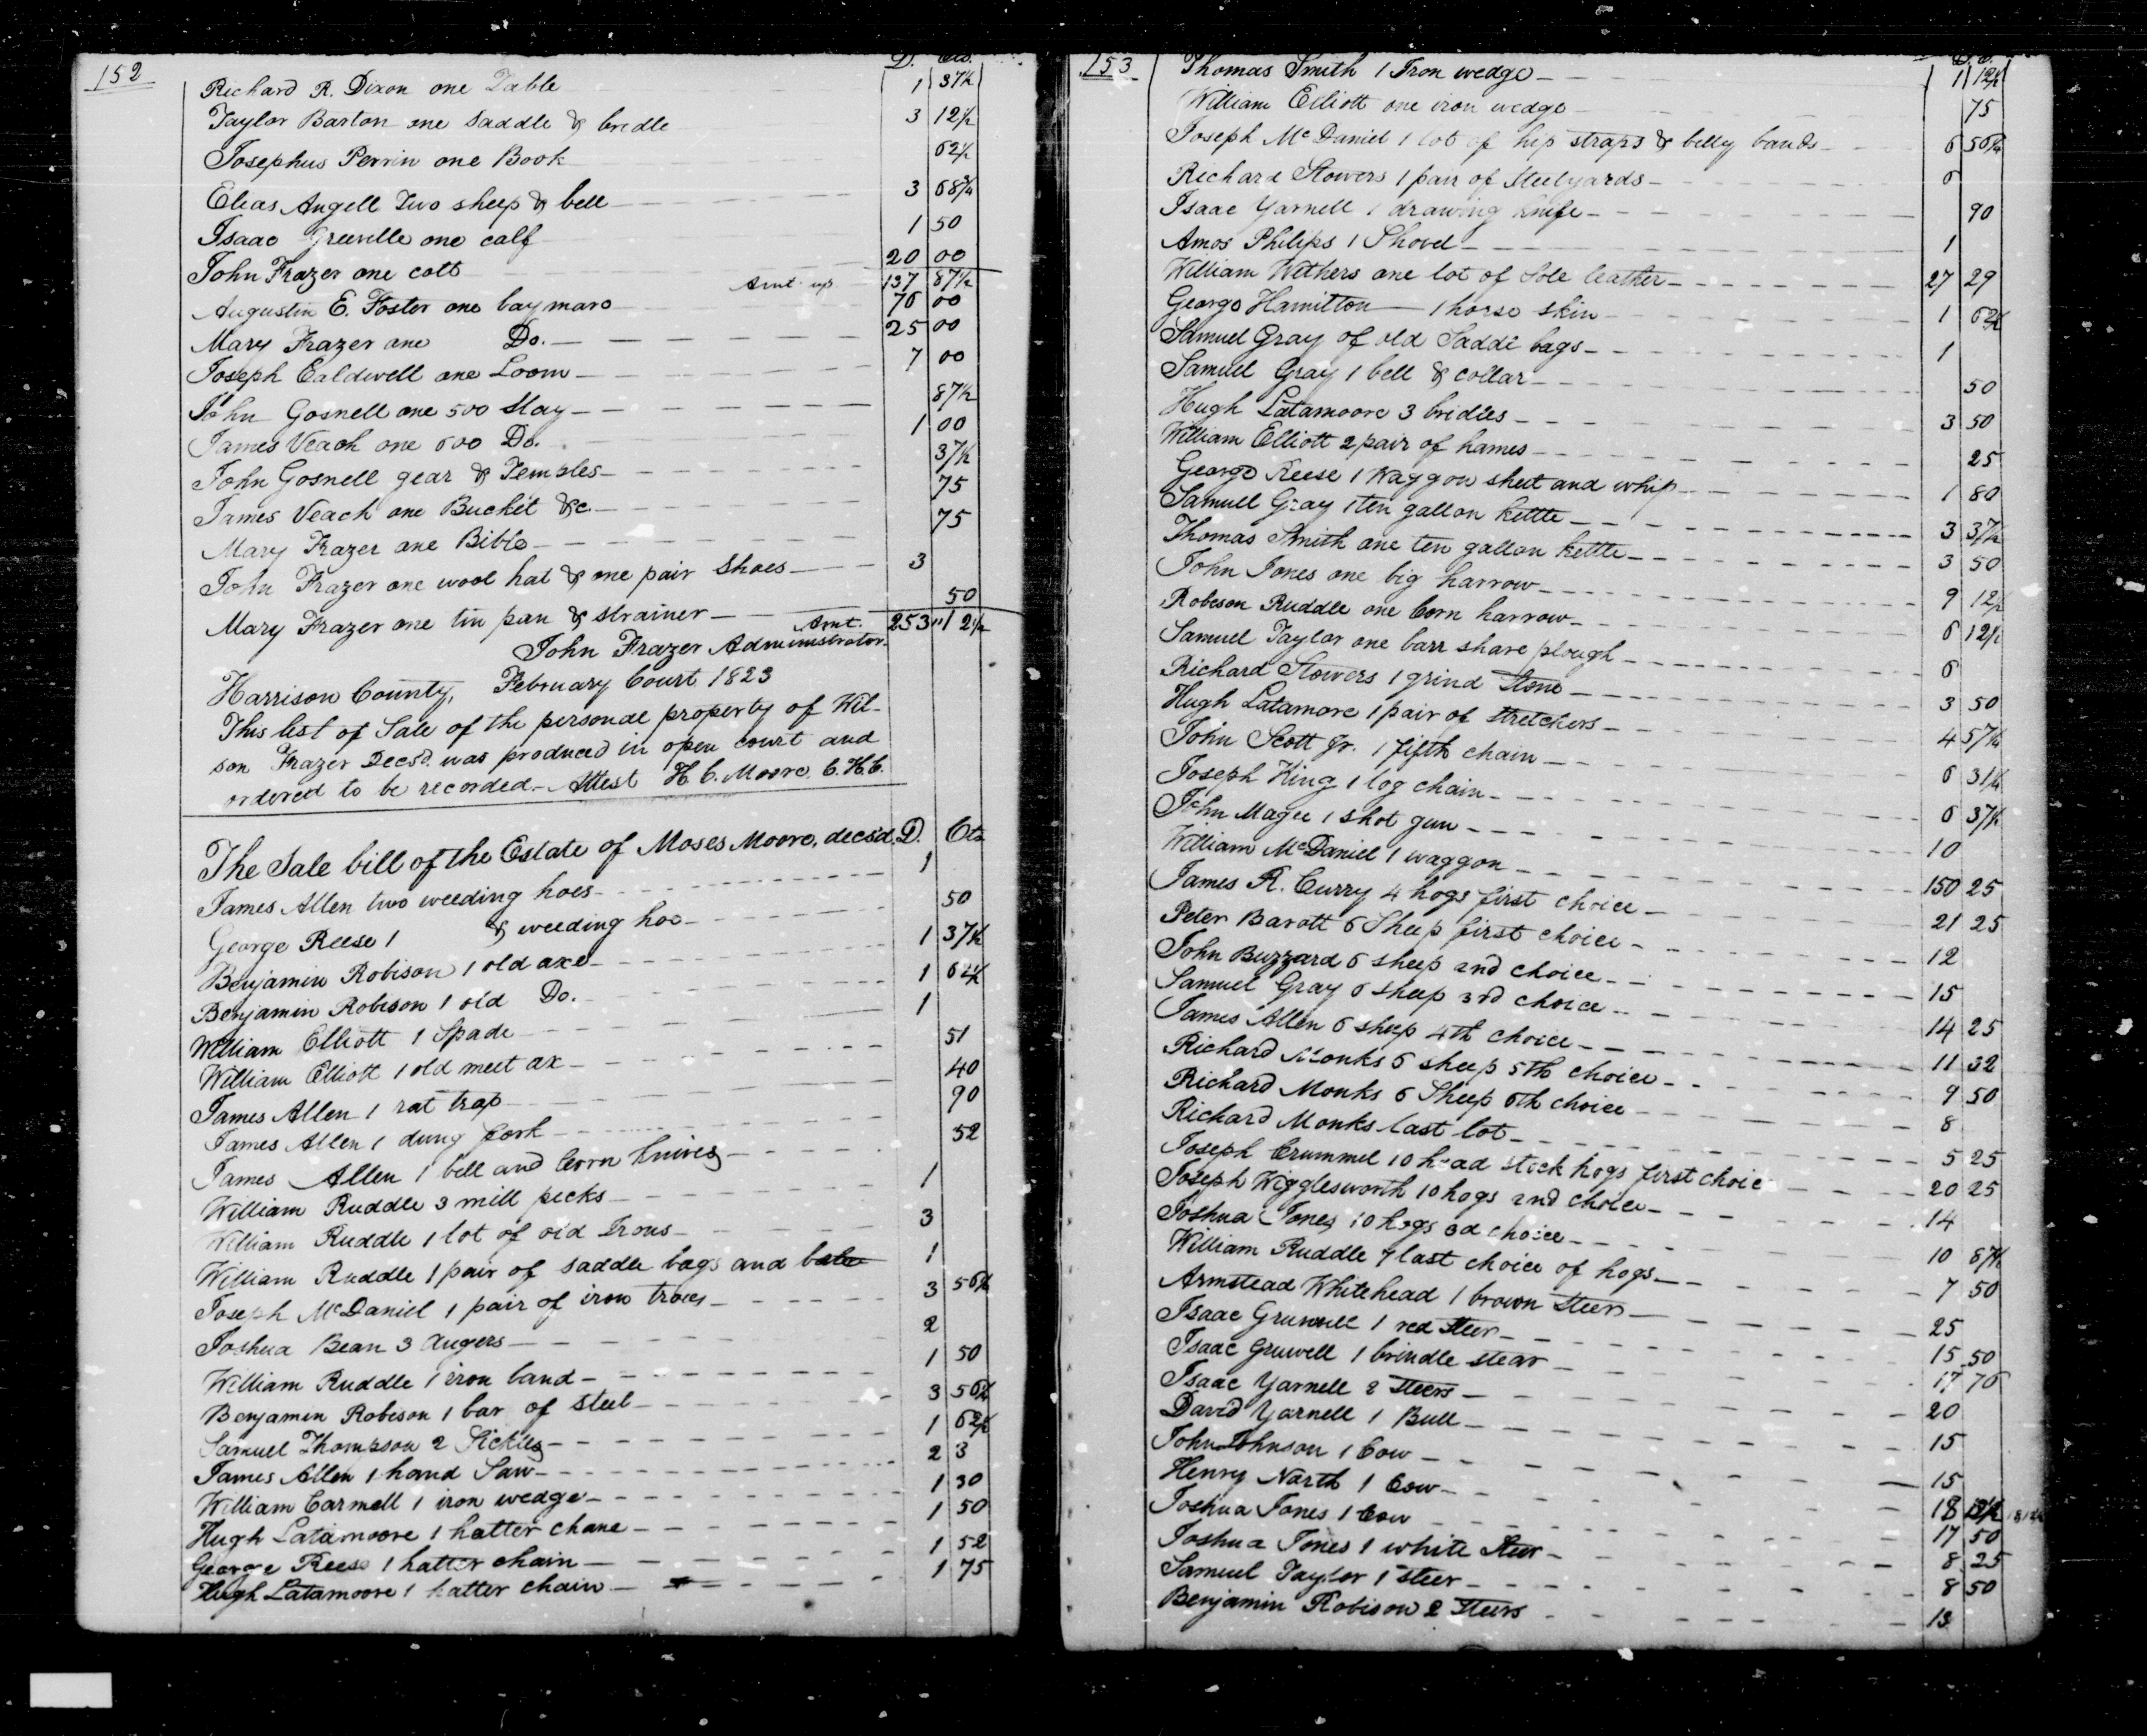 152
D. Cts.
Richard R. Dixon one Table 1 37½
Taylor Barton one Saddle & bridle 3 12½
Josephus Perrin one Book 62½
Elias Angell Two sheep & bell 3 68¾
Isaac one calf 1 50
John Frazer one colt 20 00
Amt. up. 137 87½
Augustin E. Foster one bay mare 76 00
Mary Frazer one Do. 25 00
Joseph Caldwell one Loom 7 00
John Gosnell one 500 Slay 87½
James Veach one 600 Do. 1 00
John Gosnell gear & Temples 37½
James Veach one Bucket &c 75
Mary Frazer one Bible 75
John Frazer one wool hat & one pair Shoes 3
Mary Frazer one tin pan & strainer 50
Amt. 253 "12½
John Frazer Administrator
Harrison County, February Court 1823
This list of Sale of the personal property of Wil-
son Frazer Decsd. was produced in open court and
ordered to be recorded - Attest H. C. Moore. C. H. C.
The Sale bill of the Estate of Moses Moore, decsd. D. Cts
James Allen two weeding hoes 1
George Reese 1 & weeding hoe 50
Benjamin Robison 1 old axe 1 37½
Benjamin Robison 1 old Do. 1 62½
William Elliott 1 Spade 1
William Elliott 1 old meet ax 51
James Allen 1 rat trap 40
James Allen 1 dung fork 90
James Allen 1 bell and Corn knives 52
William Ruddle 3 mill pecks 1
William Ruddle 1 lot of old Irons 3
William Ruddle 1 pair of saddle bags and 1
Joseph McDaniel 1 pair of iron traces 3 56¼
Joshua Bean 3 augers 2
William Ruddle 1 iron band 1 50
Benjamin Robison 1 bar of steel 3 56¼
Samuel Thompson 2 Sickles 1 62½
James Allen 1 hand Saw 2 3
William Carmell 1 iron wedge 1 30
Hugh Latamoore 1 halter chane 1 50
George Reese 1 halter chain 1 52
Hugh Latamoore 1 halter chain 1 75
153
D. C.
Thomas Smith 1 Iron wedge 1 12½
William Elliott one iron wedge 75
Joseph McDaniel 1 lot of hip straps & belly bands 6 56¼
Richard Stowers 1 pair of Steelyards 6
Isaac Yarnell 1 drawing knife 90
Amos Philips 1 Shovel 1
William Withers one lot of Sole leather 27 29
George Hamilton 1 horse skin 1 62½
Samuel Gray of old Saddle bags 1
Samuel Gray 1 bell & collar 50
Hugh Latamoore 3 bridles 3 50
William Elliott 2 pair of hames 25
George Reese 1 Waggon sheet and whip 1 80
Samuel Gray 1 ten gallon kettle 3 37½
Thomas Smith one ten gallon kettle 3 50
John Jones one big harrow 9 12½
Robeson Ruddle one Corn harrow 6 12½
Samuel Taylor one barr share plough 6
Richard Stowers 1 grind Stone 3 50
Hugh Latamore 1 pair of stretchers 4 57¼
John Scott Jr. 1 fifth chain 6 31¼
Joseph King 1 log chain 6 37½
John Magee 1 shot gun 10
William McDaniel 1 waggon 150 25
James R. Curry 4 hogs first choice 21 25
Peter Barott 6 Sheep first choice 12
John Buzzard 6 sheep 2nd choice 15
Samuel Gray 6 sheep 3rd choice 14 25
James Allen 6 sheep 4th choice 11 32
Richard Monks 6 sheep 5th choice 9 50
Richard Monks 6 Sheep 6th choice 8
Richard Monks last lot 5 25
Joseph Crummel 10 head stock hogs first choice 20 25
Joseph Wigglesworth 10 hogs 2nd choice 14
Joshua Jones 10 hogs 3d choice 10 87½
William Ruddle 7 last choice of hogs 7 50
Armstead Whitehead 1 brown Steer 25
Isaac Gruwell 1 red Steer 15 50
Isaac Gruwell 1 brindle stear 17 76
Isaac Yarnell 2 Steers 20
David Yarnell 1 Bull 15
John Johnson 1 Cow 15
Henry North 1 Cow 18 12½
Joshua Jones 1 Cow 17 50
Joshua Jones 1 white Steer 8 25
Samuel Taylor 1 steer 8 50
Benjamin Robison 2 Steers 13